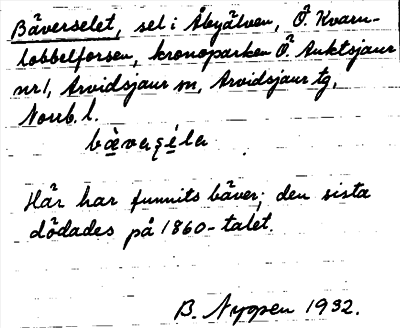 Bäverselet, sel i Åbyälven, Ö. Kvarn-
lobbelforsen, kronoparken Ö. Auktsjaur
nr 1, Arvidsjaur sn, Arvidsjaur tg,
Norrb. l.
Här har funnits bäver; den sista
dödades på 1860-talet.
B. Nygren 1932.